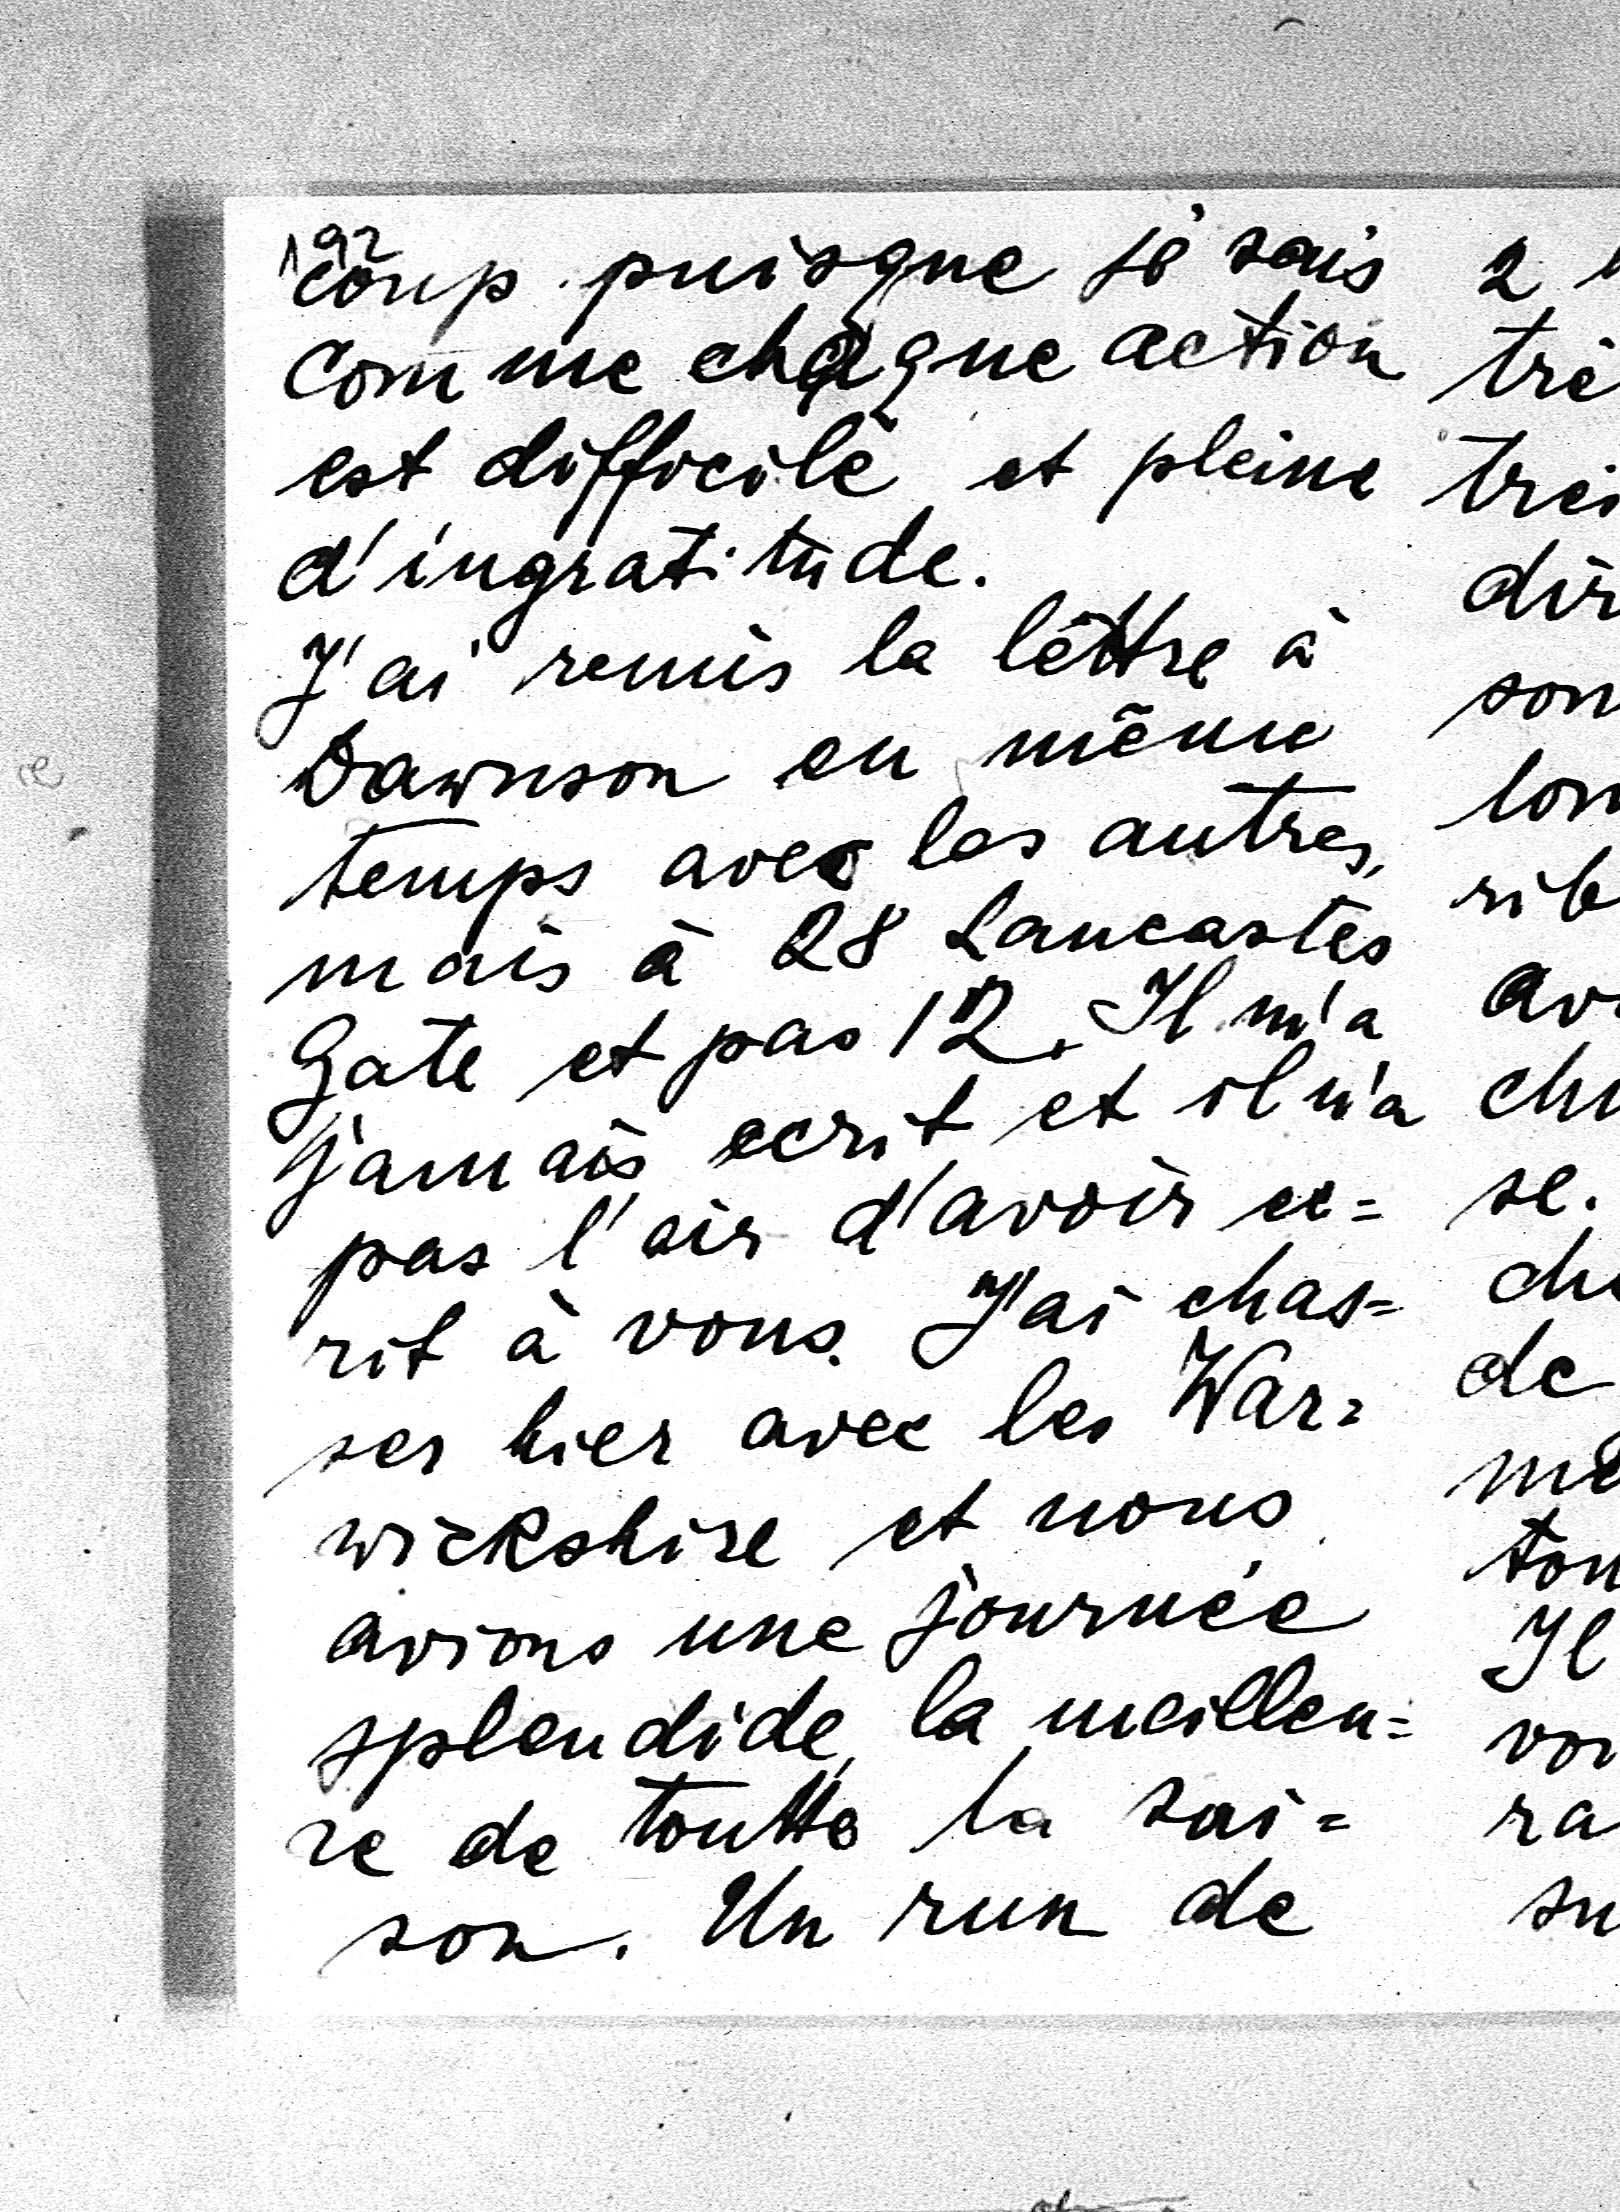 192
coup puisque je sais
comme chaque action
est difficile et pleine
d'ingratitude.
J'ai remis la lettre à
Dawnson en même
temps avec les autres,
mais à 28 Lancastes
Gate et pas 12. Il m'a
jamais ecrit et il n'a
pas l'air d'avoir ec=
rit à vous. J'ai chas=
ser hier avec les War=
wickshire et nous
avions une journée
splendide, la meilleu=
re de toutte la sai=
son. Un run de
2
trè
trè
dir
son
lon
rib
av
chu
se.
de
Il
voi
ra
su